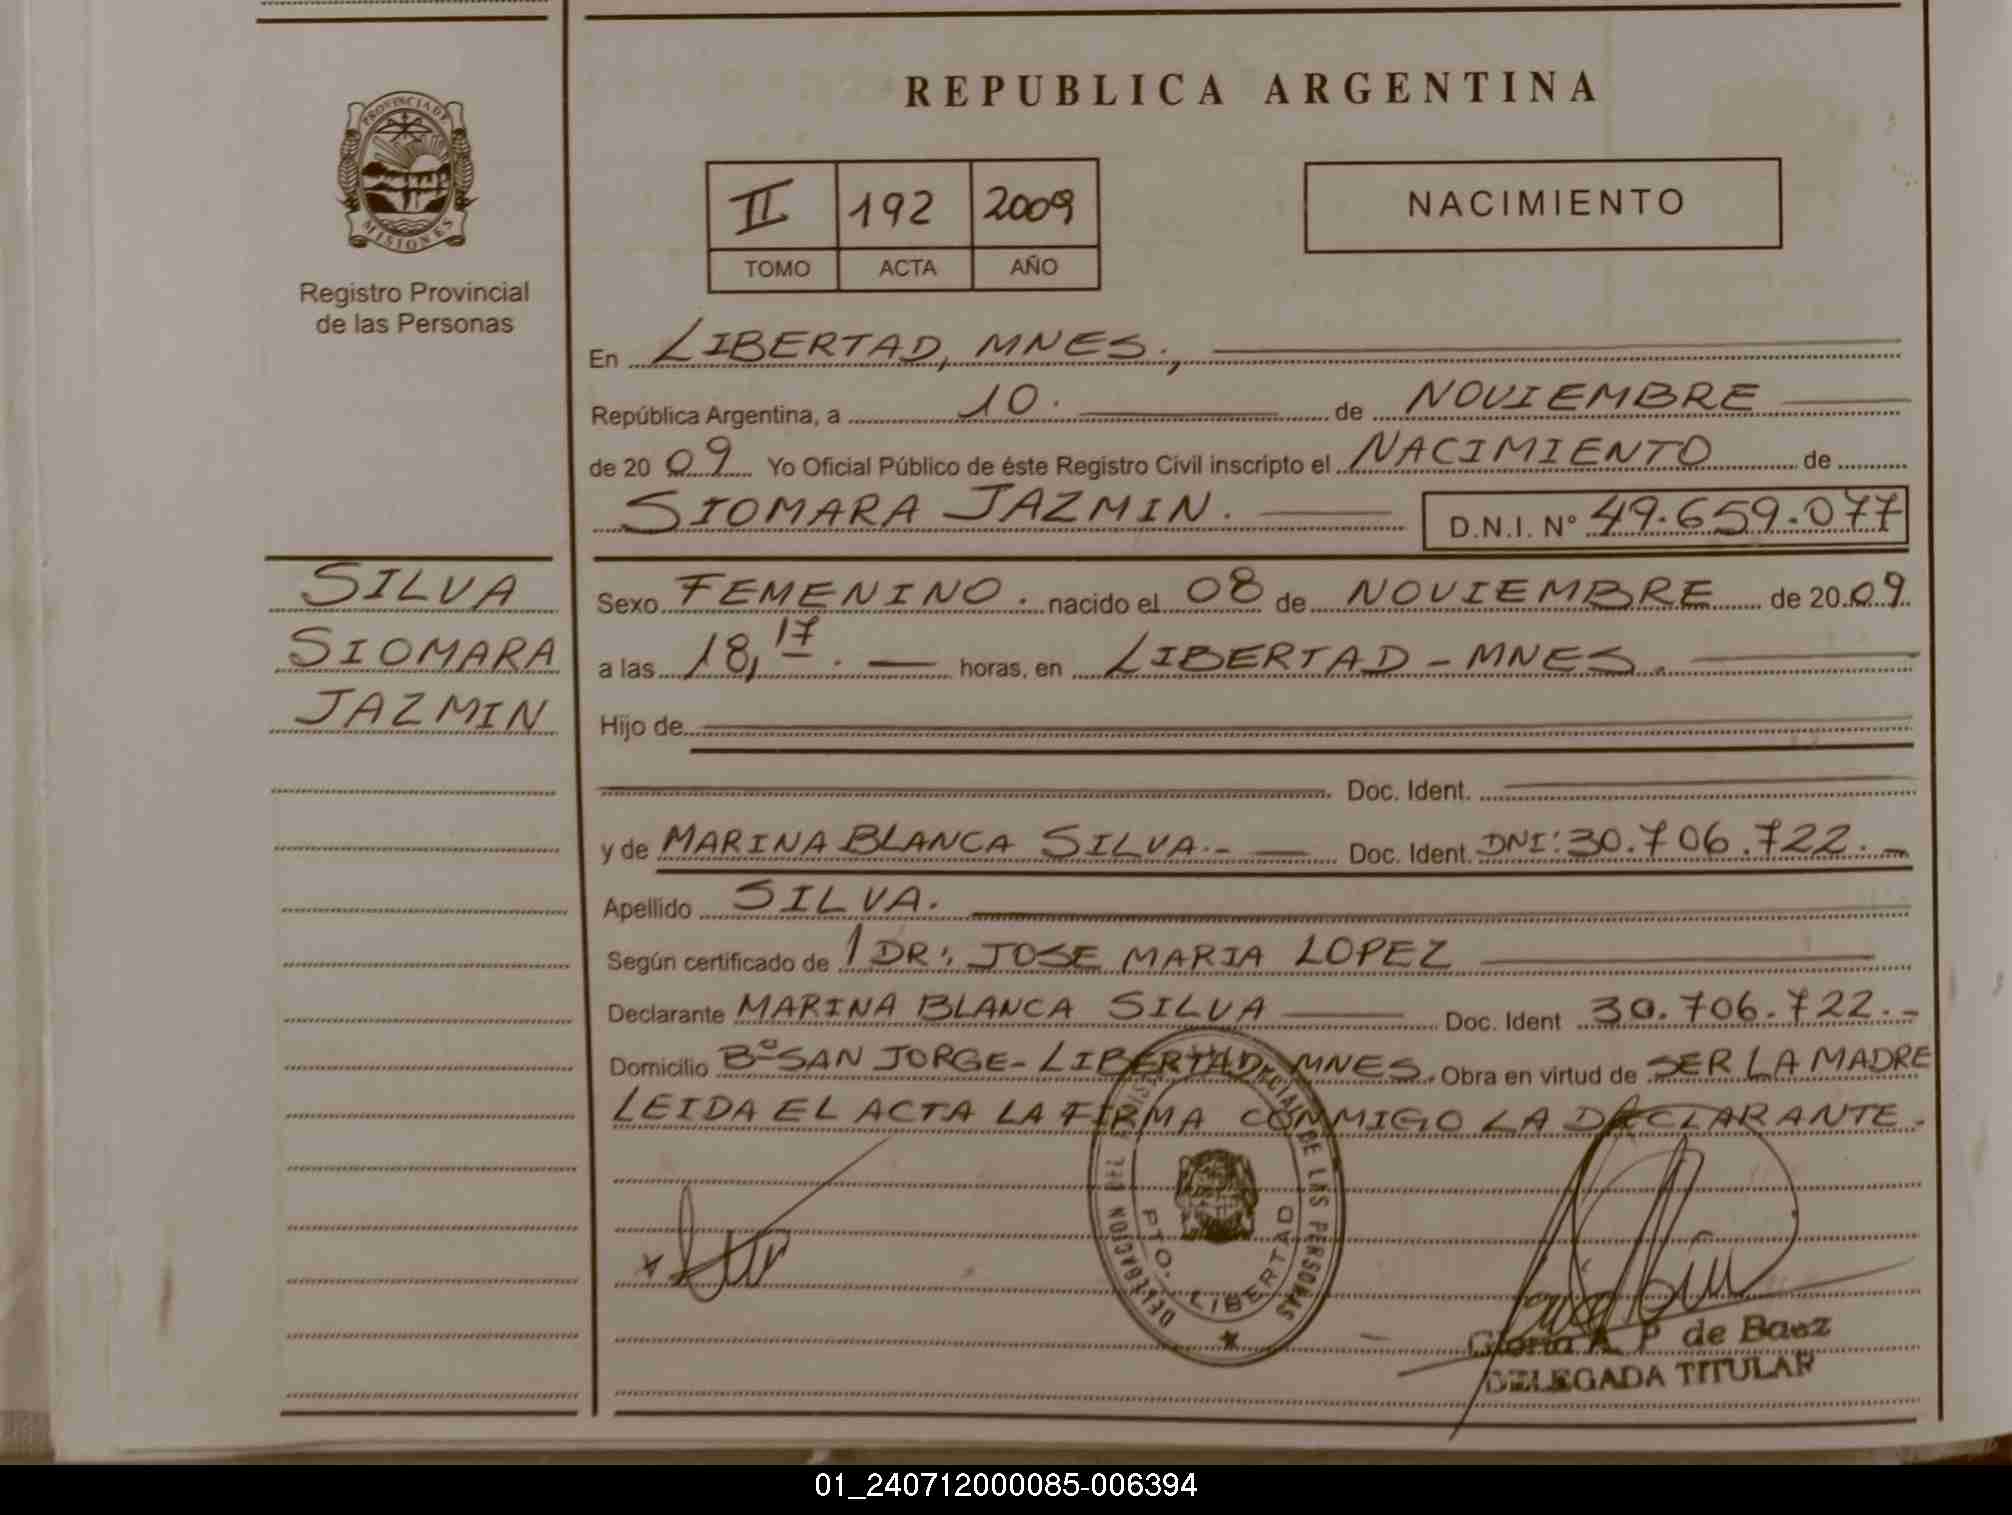 REPUBLICA ARGENTINA
PROVINCIA DE
MISIONES
Registro Provincial
de las Personas
II 192 2009
TOMO ACTA AÑO
NACIMIENTO
En LIBERTAD, MNES.,
República Argentina, a 10. de NOVIEMBRE
de 2009 Yo Oficial Público de éste Registro Civil inscripto el NACIMIENTO de
SIOMARA JAZMIN. D.N.I. N° 49.659.077
SILVA
SIOMARA
JAZMIN
Sexo FEMENINO. nacido el 08 de NOVIEMBRE de 2009.
a las 18,17. horas, en LIBERTAD - MNES.
Hijo de
Doc. Ident.
y de MARINA BLANCA SILVA.- Doc. Ident. DNI: 30.706.722.-
Apellido SILVA.
Según certificado de 1 DR: JOSE MARIA LOPEZ
Declarante MARINA BLANCA SILVA Doc. Ident 30.706.722.-
Domicilio Bº SAN JORGE - LIBERTAD, MNES. Obra en virtud de SER LA MADRE
LEIDA EL ACTA LA FIRMA CONMIGO LA DECLARANTE.
DELEGACION DEL DE LAS PERSONAS
PTO. LIBERTAD
Gloria A P de Baez
DELEGADA TITULAR
01_240712000085-006394